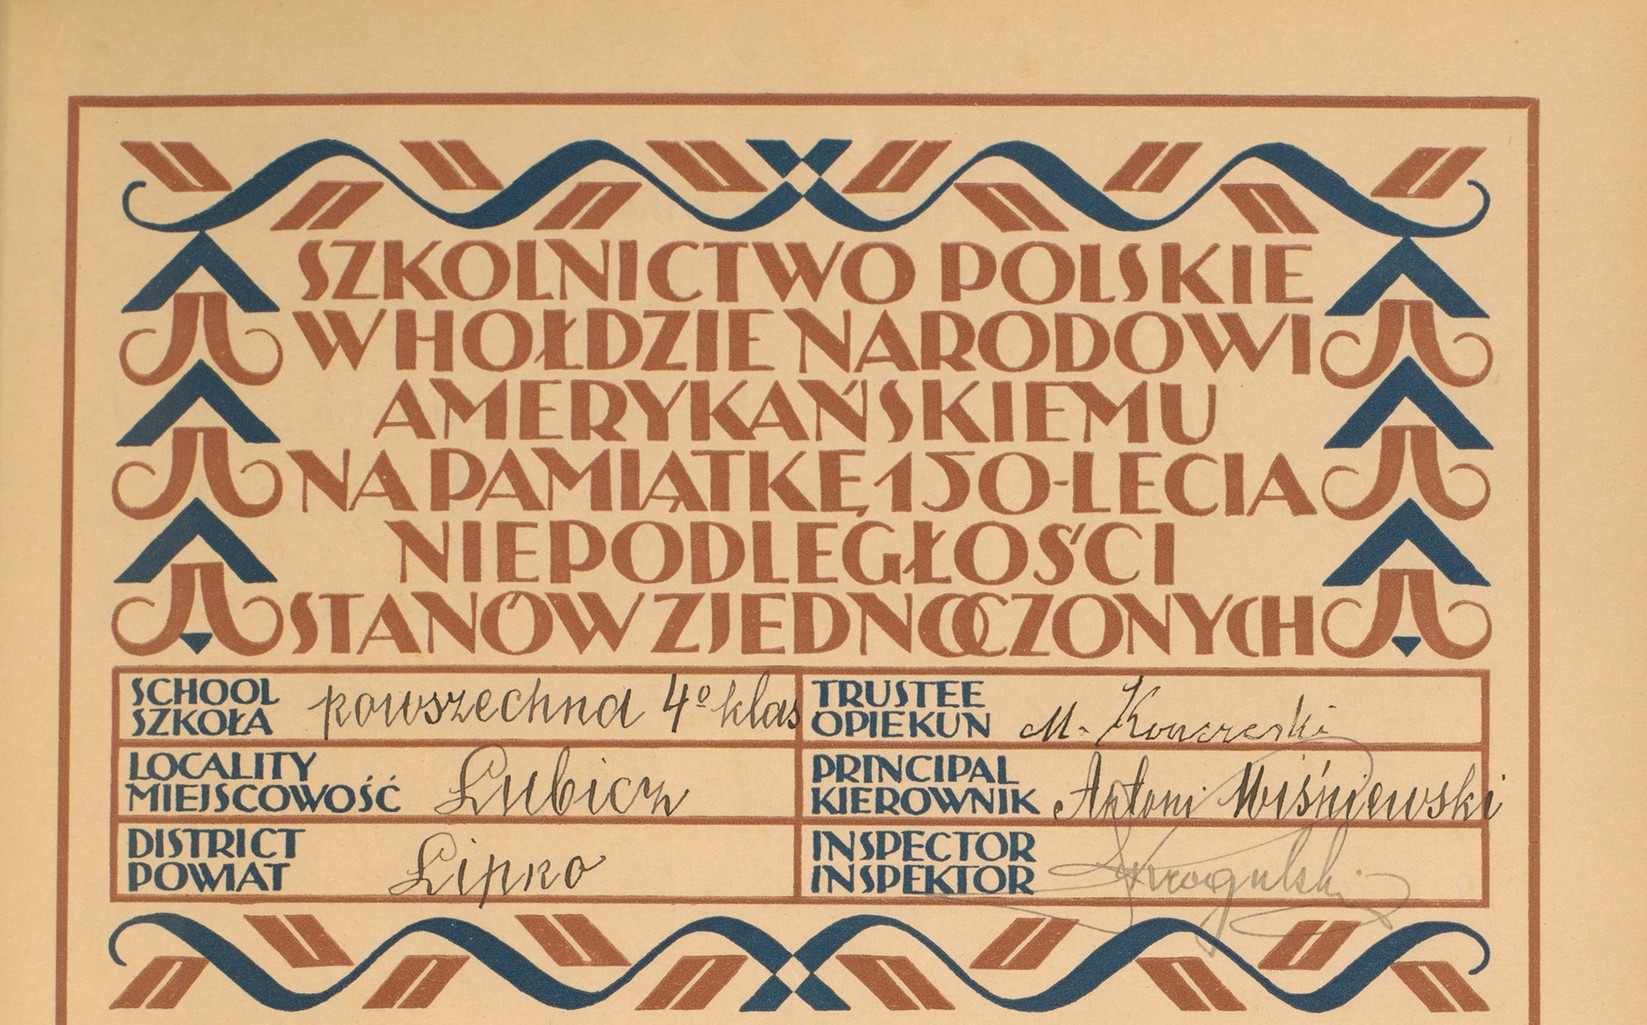 SZKOLNICTWO POLSKIE
W HOŁDZIE NARODOWI
AMERYKAŃSKIEMU
NA PAMIĄTKĘ 150-LECIA
NIEPODLEGŁOŚCI
STANÓW ZJEDNOCZONYCH
SCHOOL
SZKOŁA powszechna 4º klas
LOCALITY
MIEJSCOWOŚĆ Lubicz
DISTRICT
POWIAT Lipno
TRUSTEE
OPIEKUN M.
PRINCIPAL
KIEROWNIK Antoni Wiśniewski
INSPECTOR
INSPEKTOR